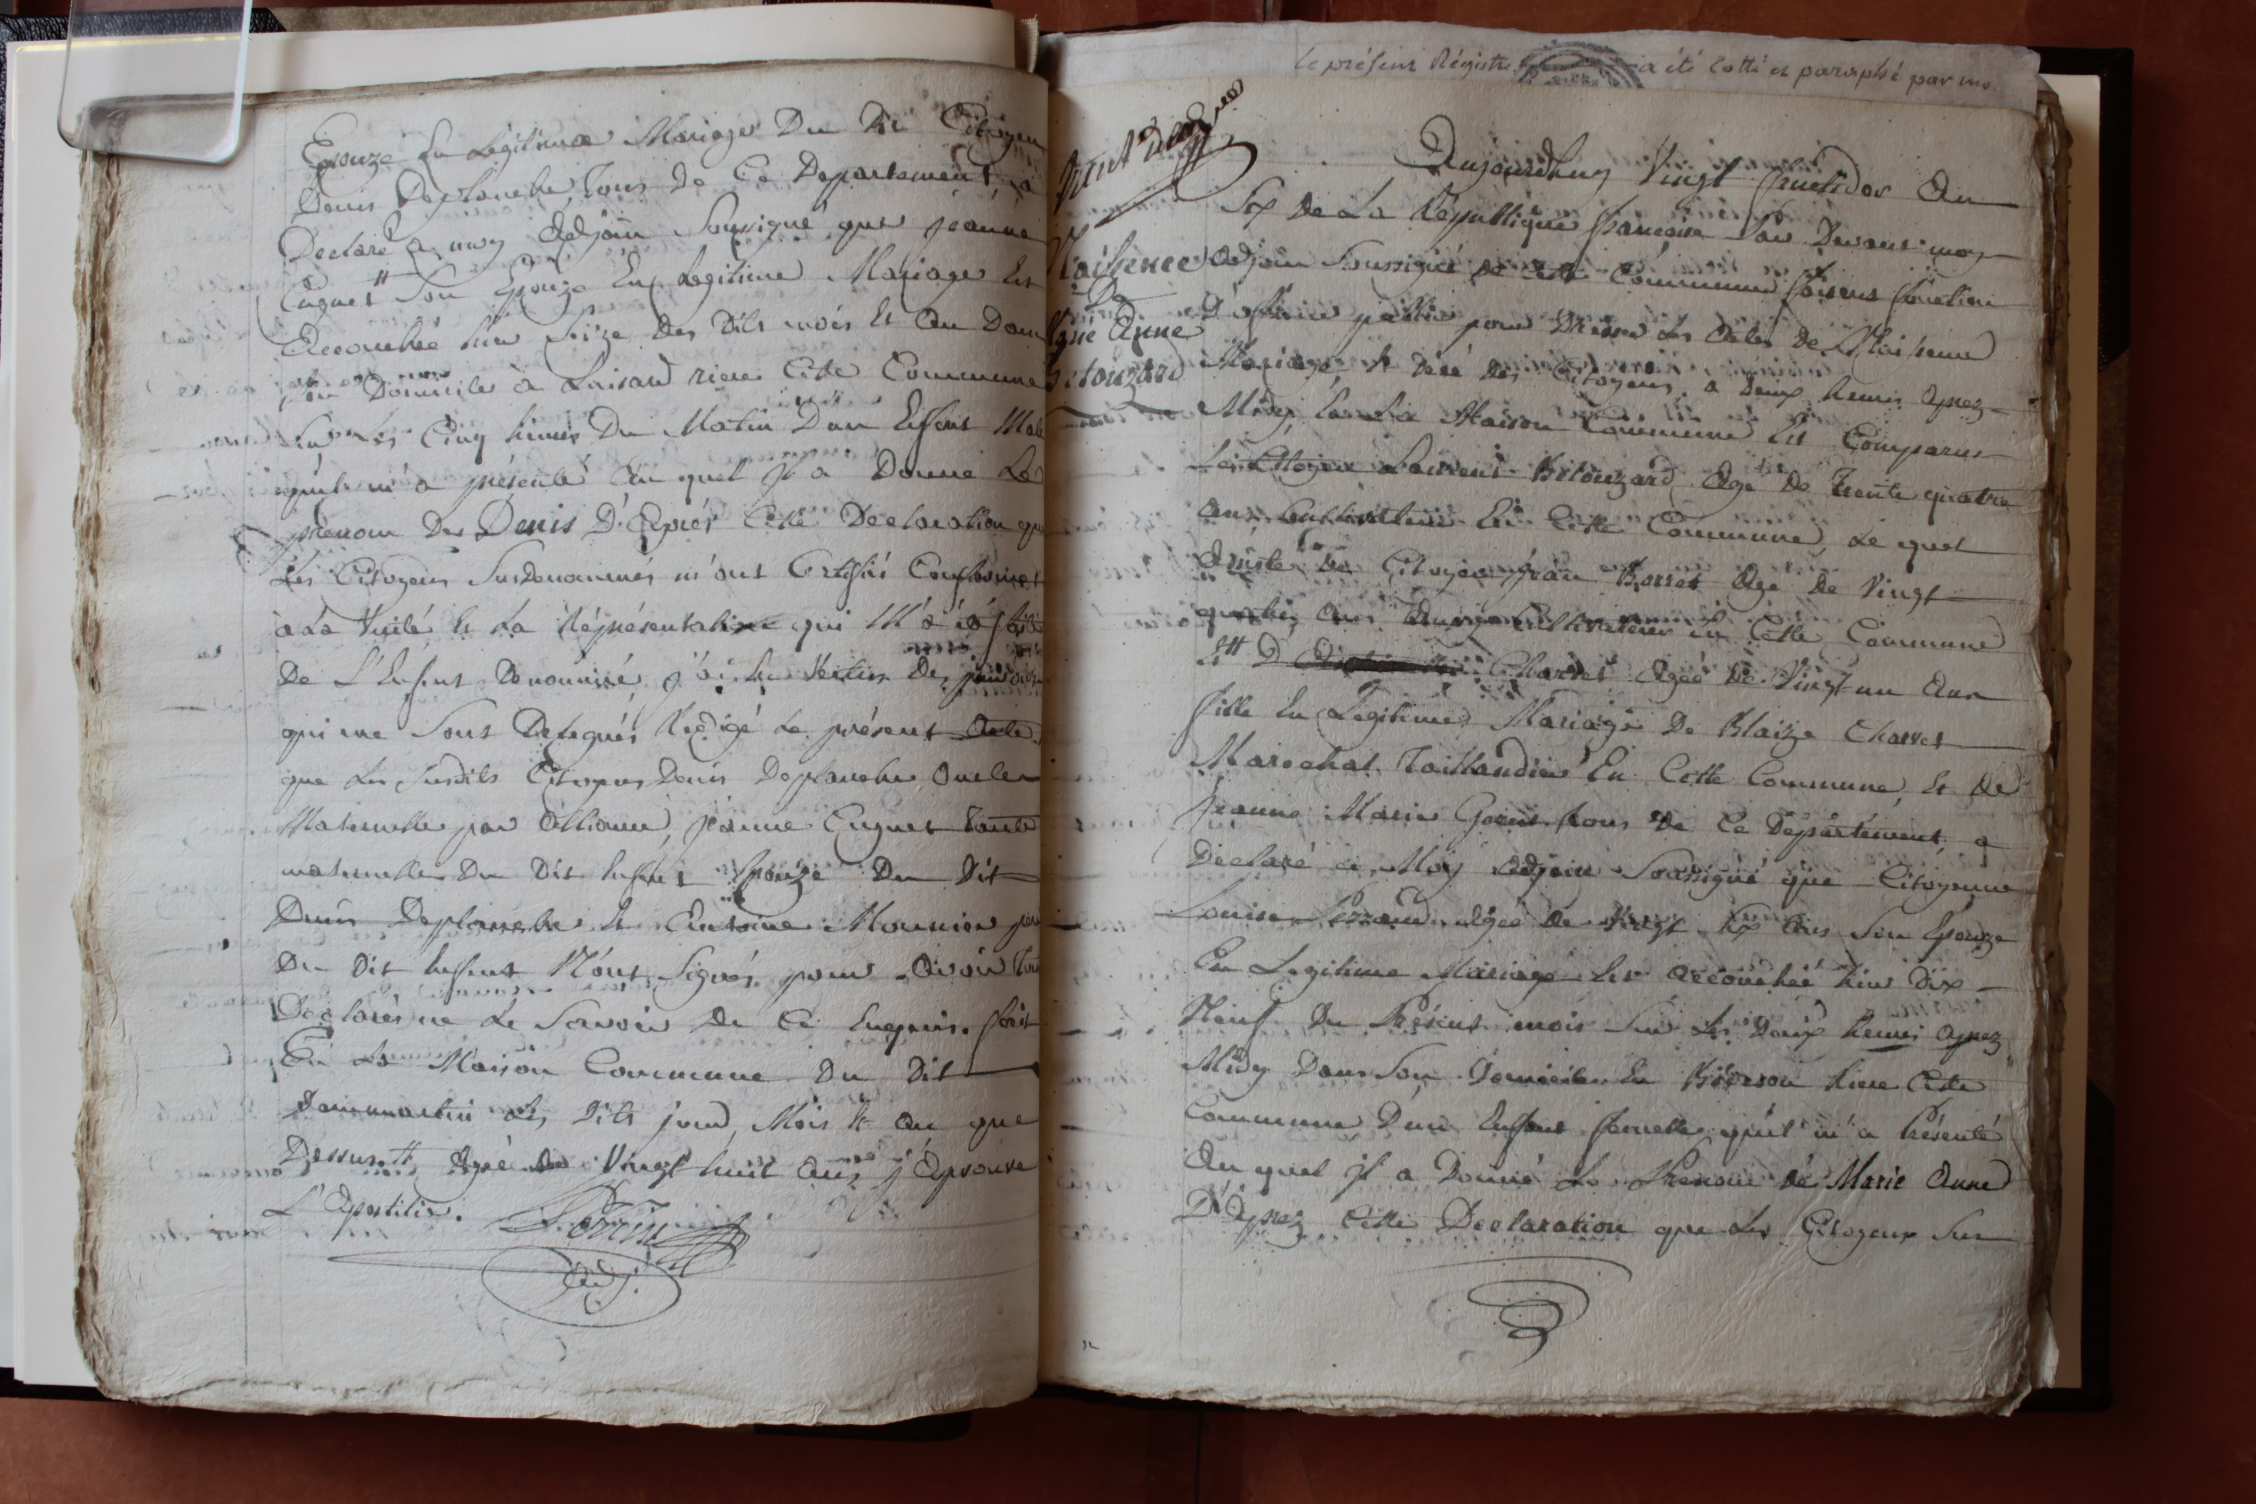 Epouze En Légitime Mariage Du Dit Citoyen
Denis Deplanche, Tous De Ce Departement, a
Declaré a moy Adjoin Soussigné que jeanne
Cuguet Son Epouze En Legitime Mariage Est
Accouchée hier Seize Des Dits mois Et An Dans
Son Domicile à Laisand riere Cette Commune
Sur Les Cinq heures Du Matin D'un Enfent Male
qu'il m'a présenté Au quel Jl a Donné Le
prenom De Denis D'Aprés Cette Declaration que
Les Citoyens Susdenommés m'ont Certifié Conforme
à La Vérité Et La Répresentation qui M'a été faite
De L'Enfent Denommé, j'ai En Vertu Des pouvoirs
qui me Sont Delegués Redigé Le présent Acte
que Les Susdits Citoyens Denis Deplanche Oncle
Maternelle par Alliance, jeanne Cuguet tante
maternelle Du Dit Enfent Epouze Du Dit
Denis Deplanche Et Antoine Mounier pere
Du Dit Enfent N'ont Signés pour Avoir Tous
Declarés ne Le Savoir De Ce Enquis. fait
En La Maison Commune Du Dit
Dommartin Les Dits jour, Mois Et An que
Dessus Agée De Vingt huit Ans j'Aprouve
L'Apostille.
Adj.
le présent Régistre a été cotté et paraphé par
Naissence
De
Marie Anne
Bélouzard
Aujourdhuy Vingt fructidor An
Six De La République francaise Par Devant moy
Adjoin Soussigné De Cette Commune faisant fonction
D'officier public pour Dresser Les Actes De Naissence
Mariage Et Décé Des Citoyens, a Deux heures Aprez
Midy, En La Maison Commune Est Comparus
Le Citoyen Laurent Bélouzard Agé De Trente quatre
Ans Cultivateur En Cette Commune, Le quel
Assisté Du Citoyen Jean Borret Agé De Vingt
quatre Ans Cultivateur En Cette Commune
Et D Charvet Agée De Vingt un Ans
fille En Legitime Mariage De Blaize Charvet
Marechal Taillandier En Cette Commune, Et De
Jeanne Marie Tous De Ce Département, a
Déclaré a Moy Adjoin Soussigné que Citoyenne
Louise Agée De Vingt Six Ans Son Epouze
En Legitime Mariage Est Accouchée hier Dix
Neuf Du Présent mois Sur Les Deux heures Aprez
Midy Dans Son Domicile En riere Cette
Commune D'une Enfent femelle qu'il m'a Présenté
Au quel Jl a Donné Le Prenom de Marie Anne
D'Aprez Cette Declaration que Les Citoyens Sus